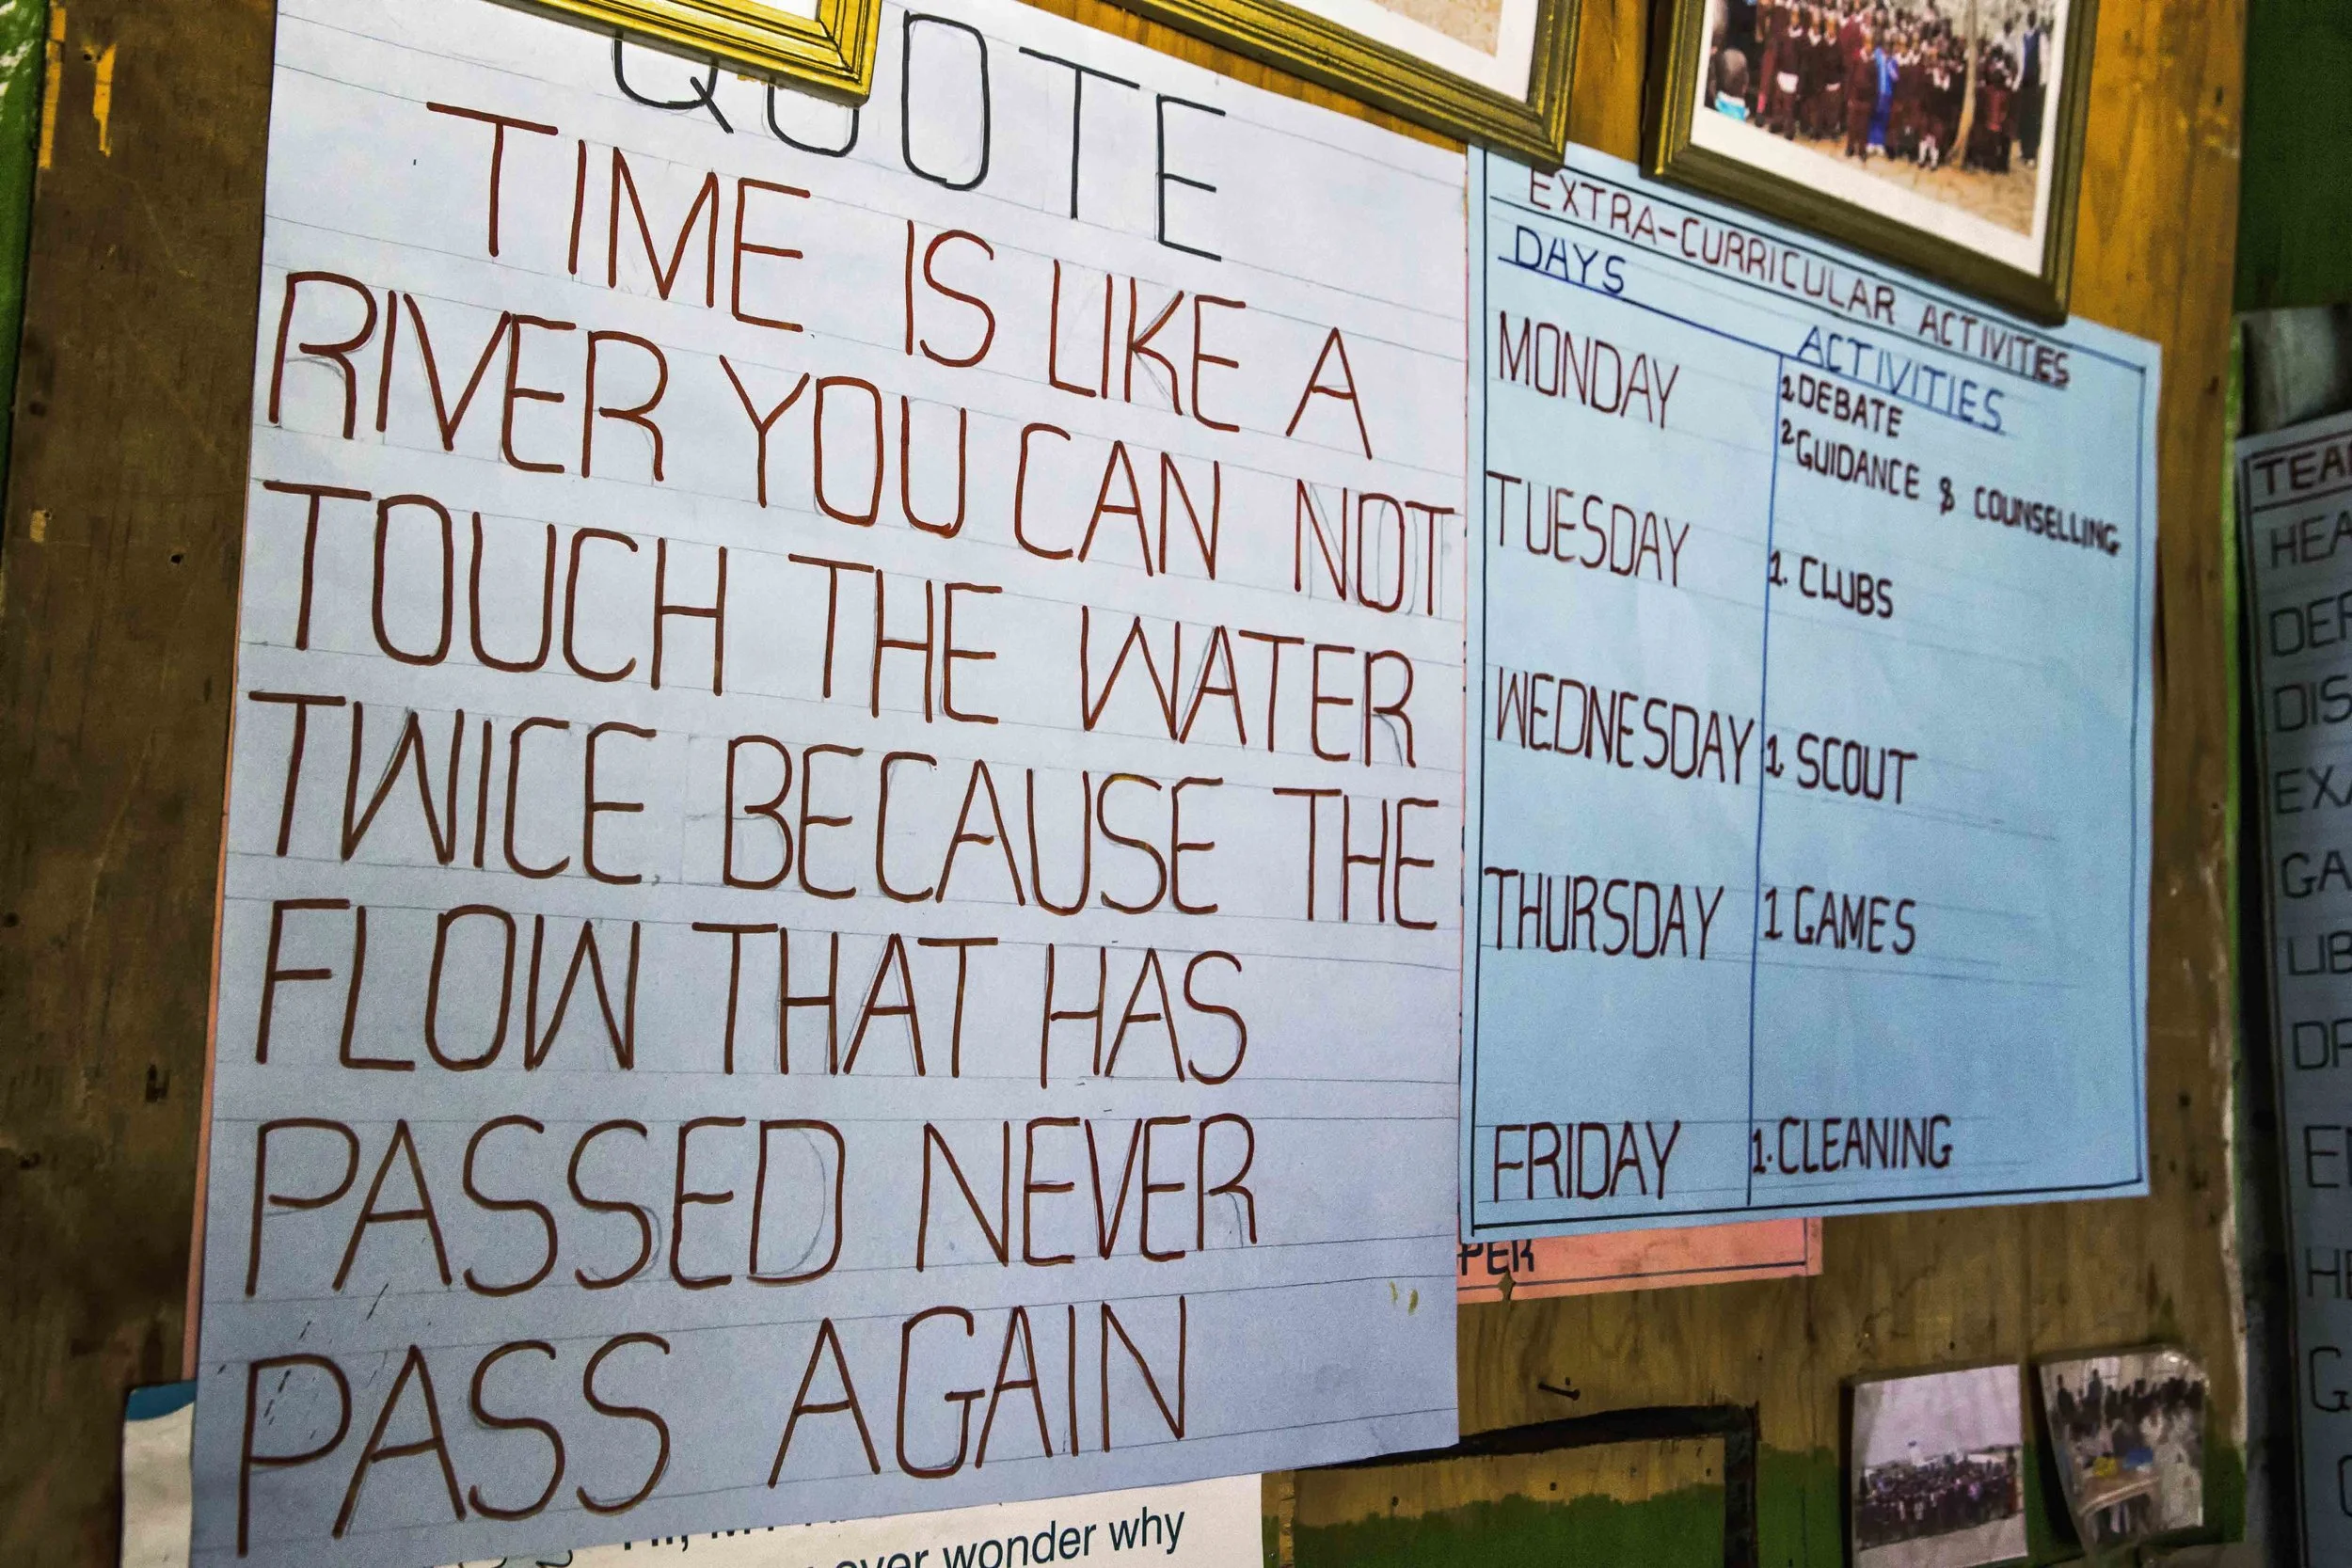 QUOTE
TIME IS LIKE A
RIVER YOU CAN NOT
TOUCH THE WATER
TWICE BECAUSE THE
FLOW THAT HAS
PASSED NEVER
PASS AGAIN
EXTRA-CURRICULAR ACTIVITIES
DAYS ACTIVITIES
MONDAY 1 DEBATE
2 GUIDANCE & COUNSELLING
TUESDAY 1. CLUBS
WEDNESDAY 1 SCOUT
THURSDAY 1 GAMES
FRIDAY 1. CLEANING
PER
wonder why
TEA
HEA
DEP
DIS
EXA
GA
LIB